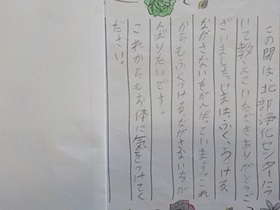 この間は、北部浄化センターにつ
いて教えていただきありがとうご
ざいました。いまは、ふく、うつける
ながさないをがんばっています。これ
からもふくつけるながさないをが
んばりたいです。
これからもお体に気をつけてく
ださい。